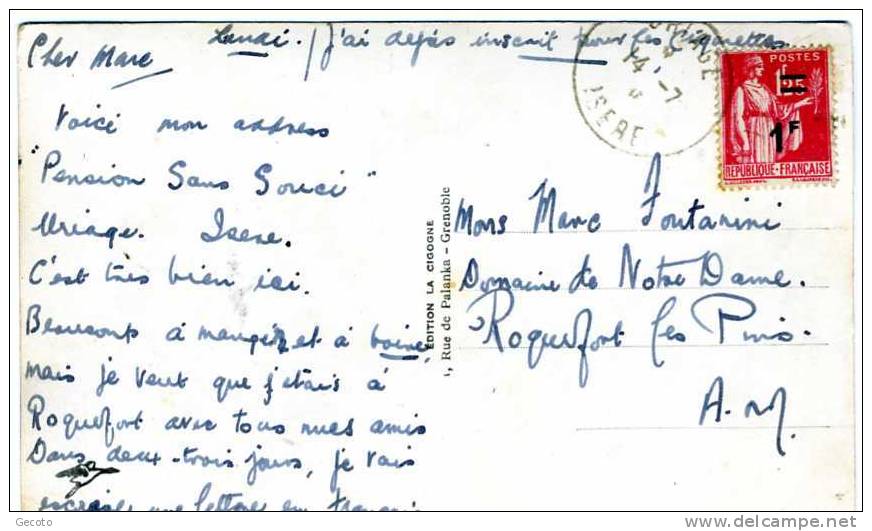 Lundi. / J'ai dejás inscrit pour les Cigarettes
Cher Marc
Voici mon address
"Pension Sans Souci"
Uriage. Isere.
C'est très bien ici.
Beaucoup à manger et à boire,
mais je veut que j'etais à
Roquefort avec tous mes amis
Dans deux-trois jours, je vais
une lettre en
ÉDITION LA CIGOGNE
1, Rue de Palanka - Grenoble
URIAGE
14 -7
ISERE
POSTES
1F
REPUBLIQUE-FRANÇAISE
Mons Marc Fontanini
Domaine de Notre Dame.
Roquefort les Pins.
A.M.
Gecoto
delcampe.net